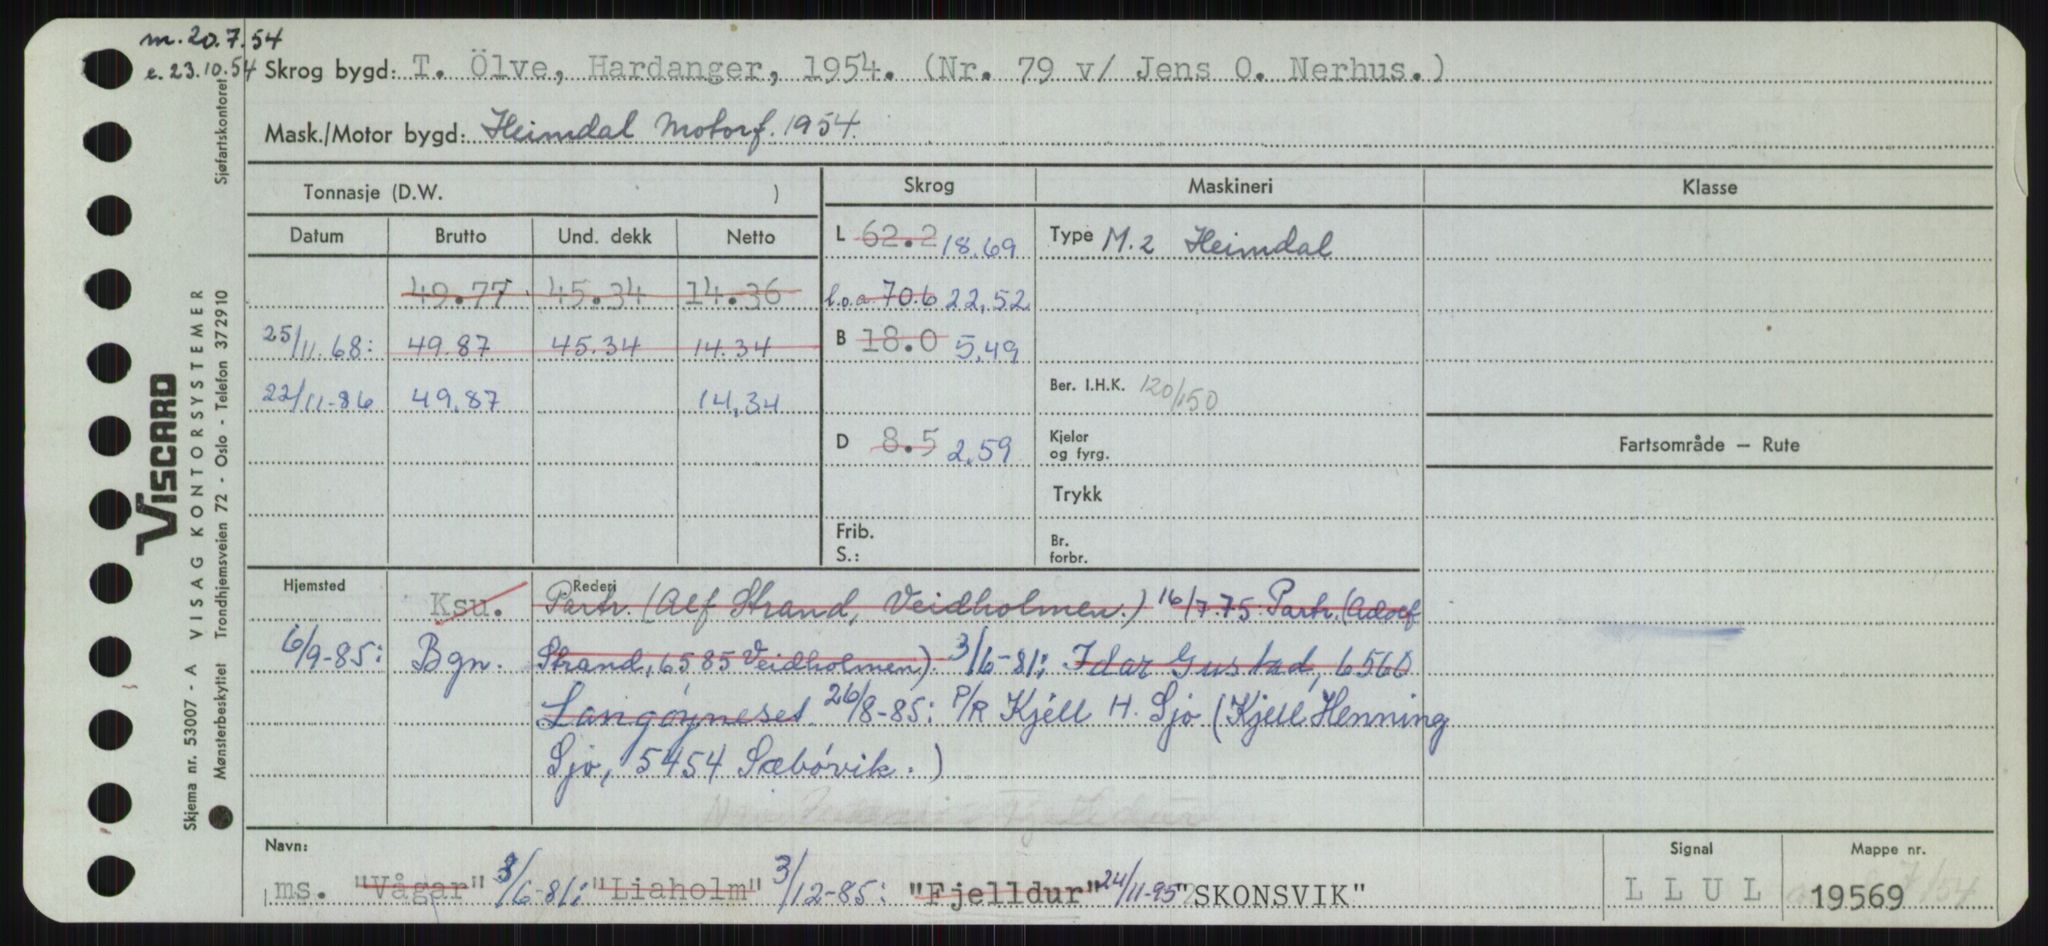 m. 20.7.54
e. 23.10.54
Skrog bygd: T. Ölve, Hardanger, 1954. (Nr. 79 v/ Jens O. Nerhus.)
Mask./Motor bygd: Heimdal Motorf. 1954.
Tonnasje (D.W. )
Skrog
Maskineri
Klasse
Datum Brutto Und. dekk Netto
L 62.2 18.69
Type M.2 Heimdal
49.77 45.34 14.36
l.o.a. 70.6 22,52
25/11.68: 49.87 45.34 14.34
B 18.0 5,49
22/11-86 49,87 14,34
Ber. I.H.K. 120/150
D 8.5 2,59
Kjeler
og fyrg.
Fartsområde — Rute
Trykk
Frib.
S.:
Br.
forbr.
Hjemsted
Rederi
Ksu. Partr. (Alf Strand, Veidholmen.) 16/7.75: Partr. (Adolf
6/9-85: Bgn. Strand, 6585 Veidholmen). 3/6-81: Idar Gustad, 6560
Langøyneset 26/8-85: P/R Kjell H. Sjo (Kjell Henning
Sjo, 5454 Sæbövik.)
Navn:
Signal
Mappe nr.
ms. "Vågar" 3/6-81: "Liaholm" 3/12-85: "Fjelldur" 24/11-95 "SKONSVIK"
L L U L
19569
7/54
Sjøfartskontoret
VISCARD
VISAG KONTORSYSTEMER
Skjema nr. 53007 - A
Mønsterbeskyttet Trondhjemsveien 72 - Oslo - Telefon 372910